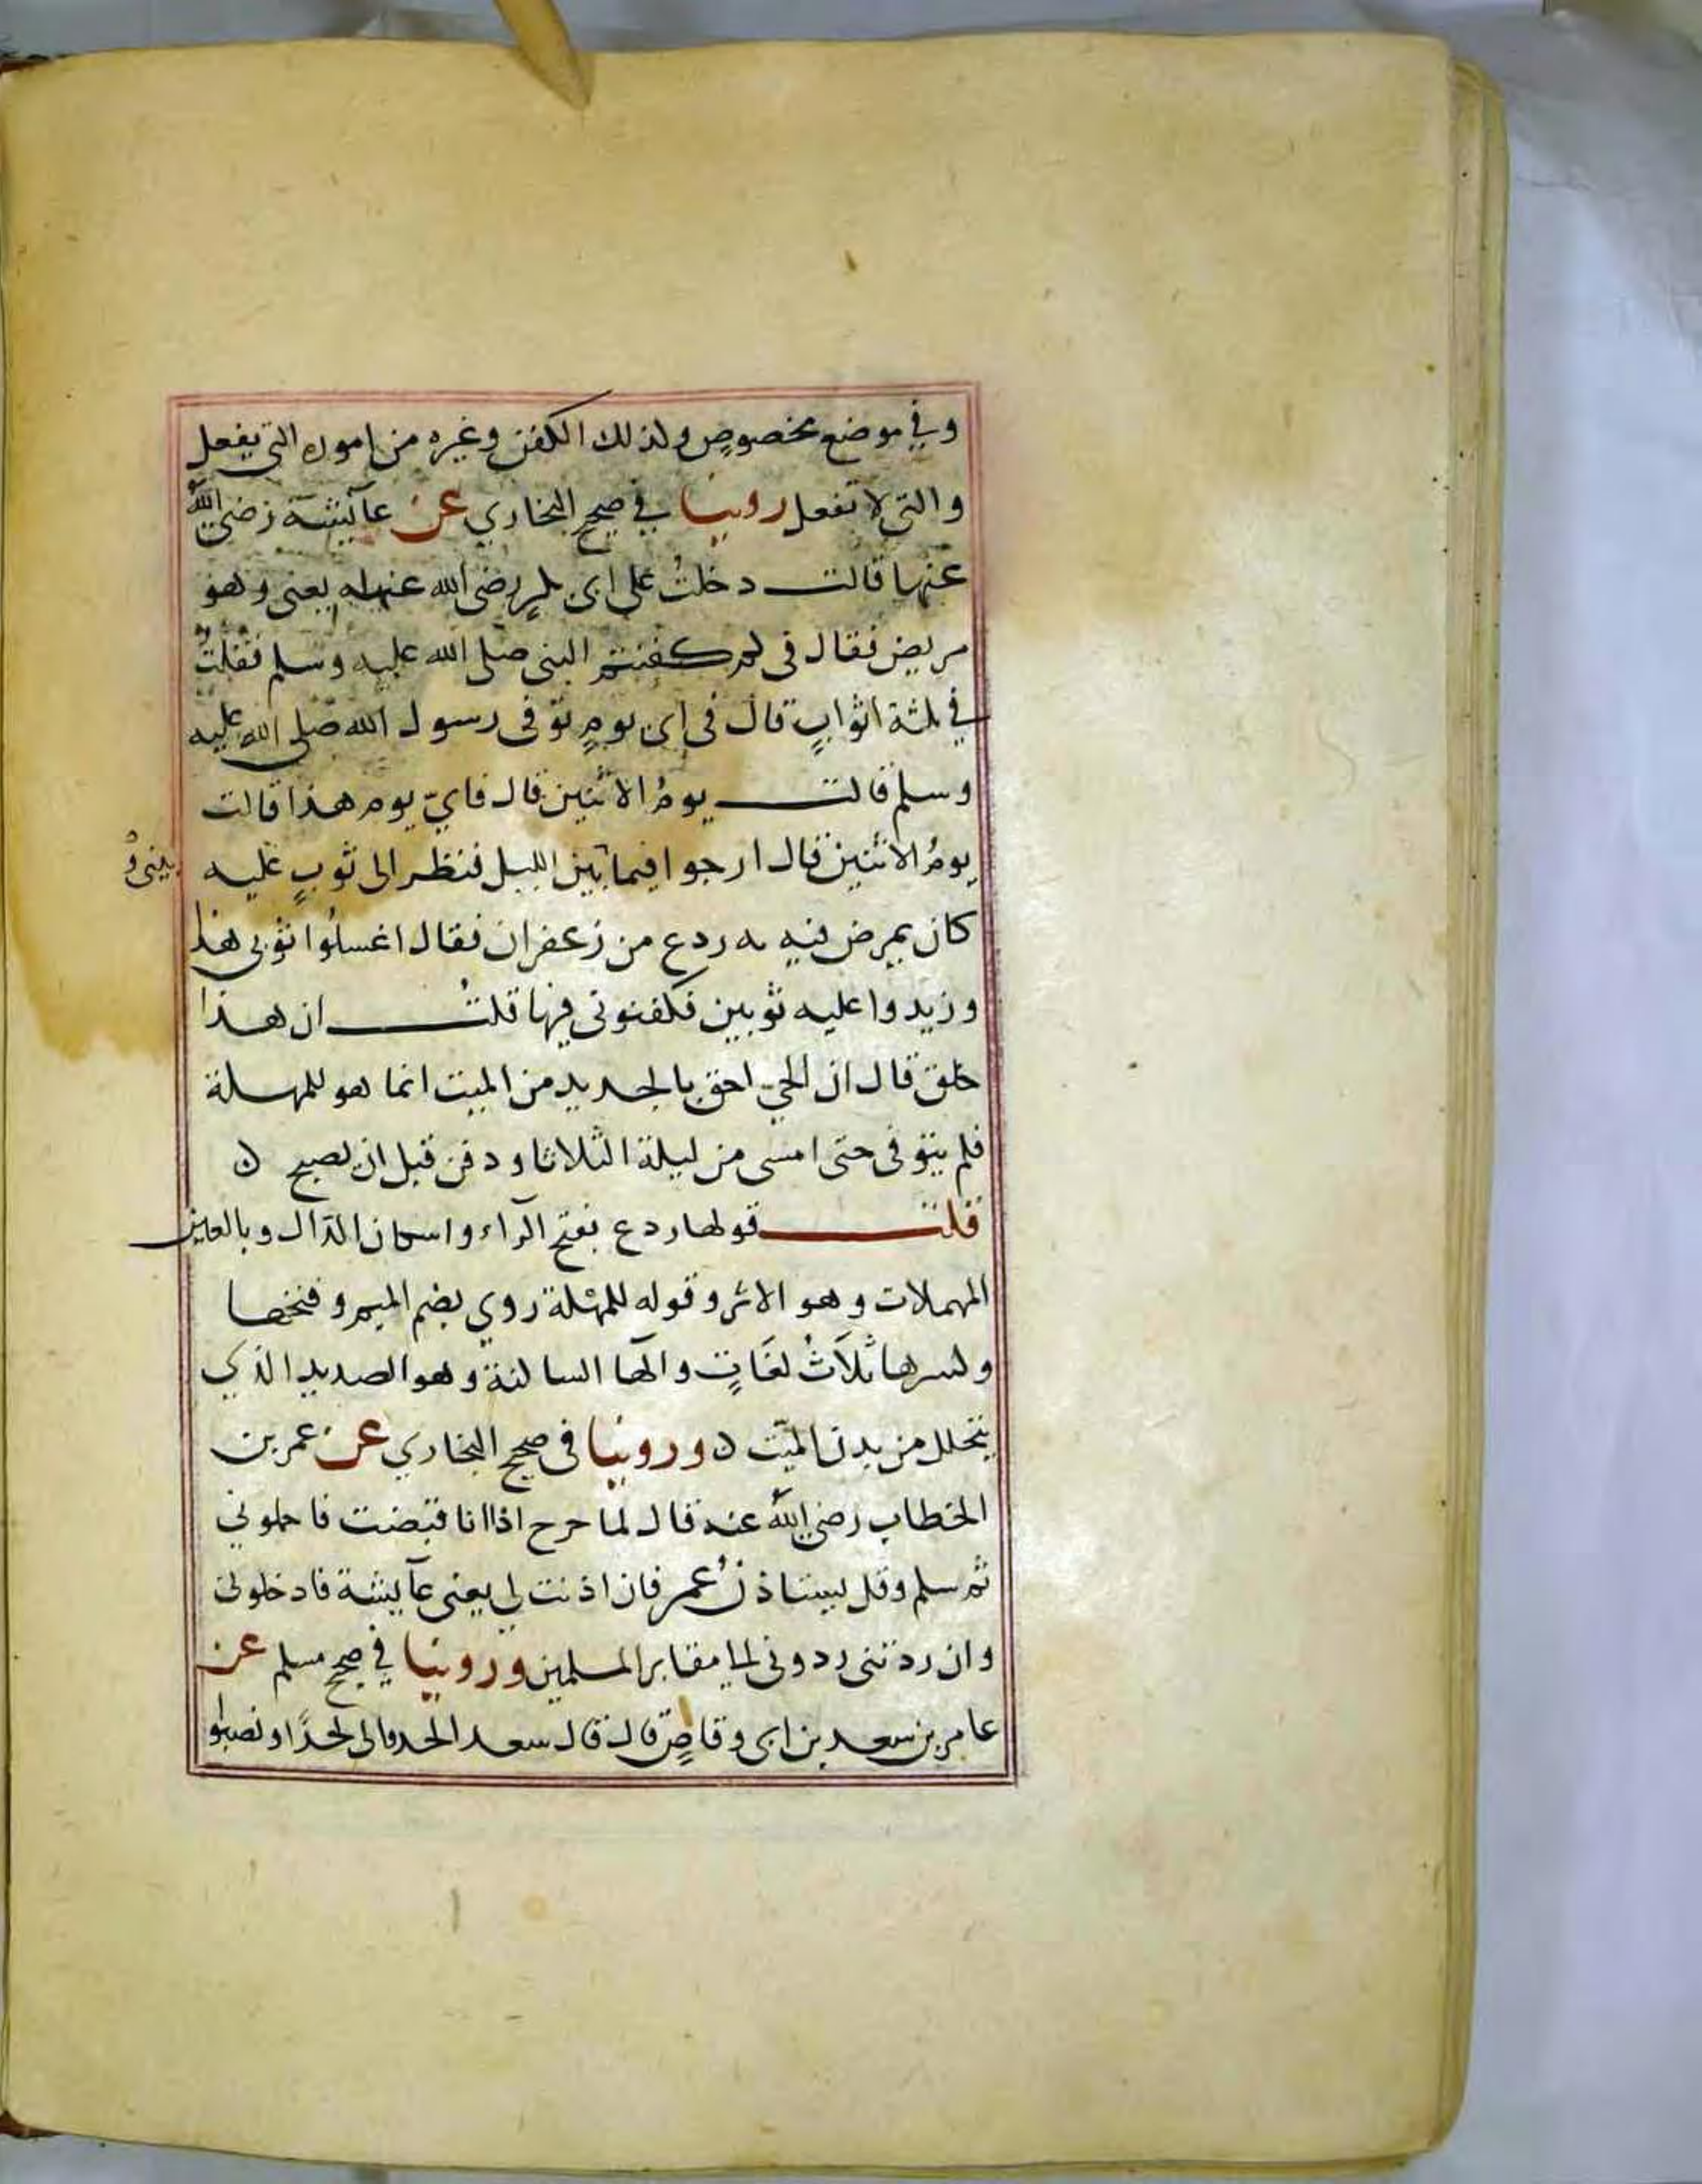 وفي موضع مخصوصٍ ولذلك الكفن وغيره من اموره التي يفعل
والتي لا تفعل روينا في صحيح البخاري عن عآئيشة رضي الله
عنها قالت دخلتُ على ابى بكر رضى الله عنه يعنى وهو
مريض فقال فى كم كفنتم النبى صلى الله عليه وسلم فقلتُ
في ثلثة اثوابٍ قال فى اى يومٍ توفى رسول الله صلى الله عليه
وسلم قالت يومُ الاثنين قال فايّ يوم هذا قالت
يومُ الاثنين قال ارجوا فيما بين الليل فنظر الى ثوبٍ عليه
بينى و
كان يمرض فيه به ردع من زعفران فقال اغسلُوا ثوبى هذا
وزيدوا عليه ثوبين فكفنونى فيها قلتُ ان هذا
خلق قال ان الحيّ احق بالجديد من الميت انما هو للمهلة
فلم يتوفى حتى امسى من ليلة الثلاثا ودفن قبل ان يصبح ن
قلت قولها ردع بفتح الرآء واسكان الدال وبالعين
المهملات وهو الاثر وقوله للمهلة روي بضم الميم وفتحها
وكسرها ثلاثُ لغاتٍ والها الساكنة وهو الصديد الذي
يتحلل من بدن الميّت ن وروينا فى صحيح البخاري عن عمر بن
الخطاب رضي الله عنه قال لما جرح اذا انا قبضت فاحملوني
ثم سلم وقل يستاذنُ عمر فان اذنت لي يعنى عآيشة فادخلونى
وان ردتنى ردونى الى مقابر المسلمين وروينا في صحيح مسلم عن
عامر بن سعد بن ابى وقاصٍ قال قال سعد الحدوالى لحدًا ونصبوا